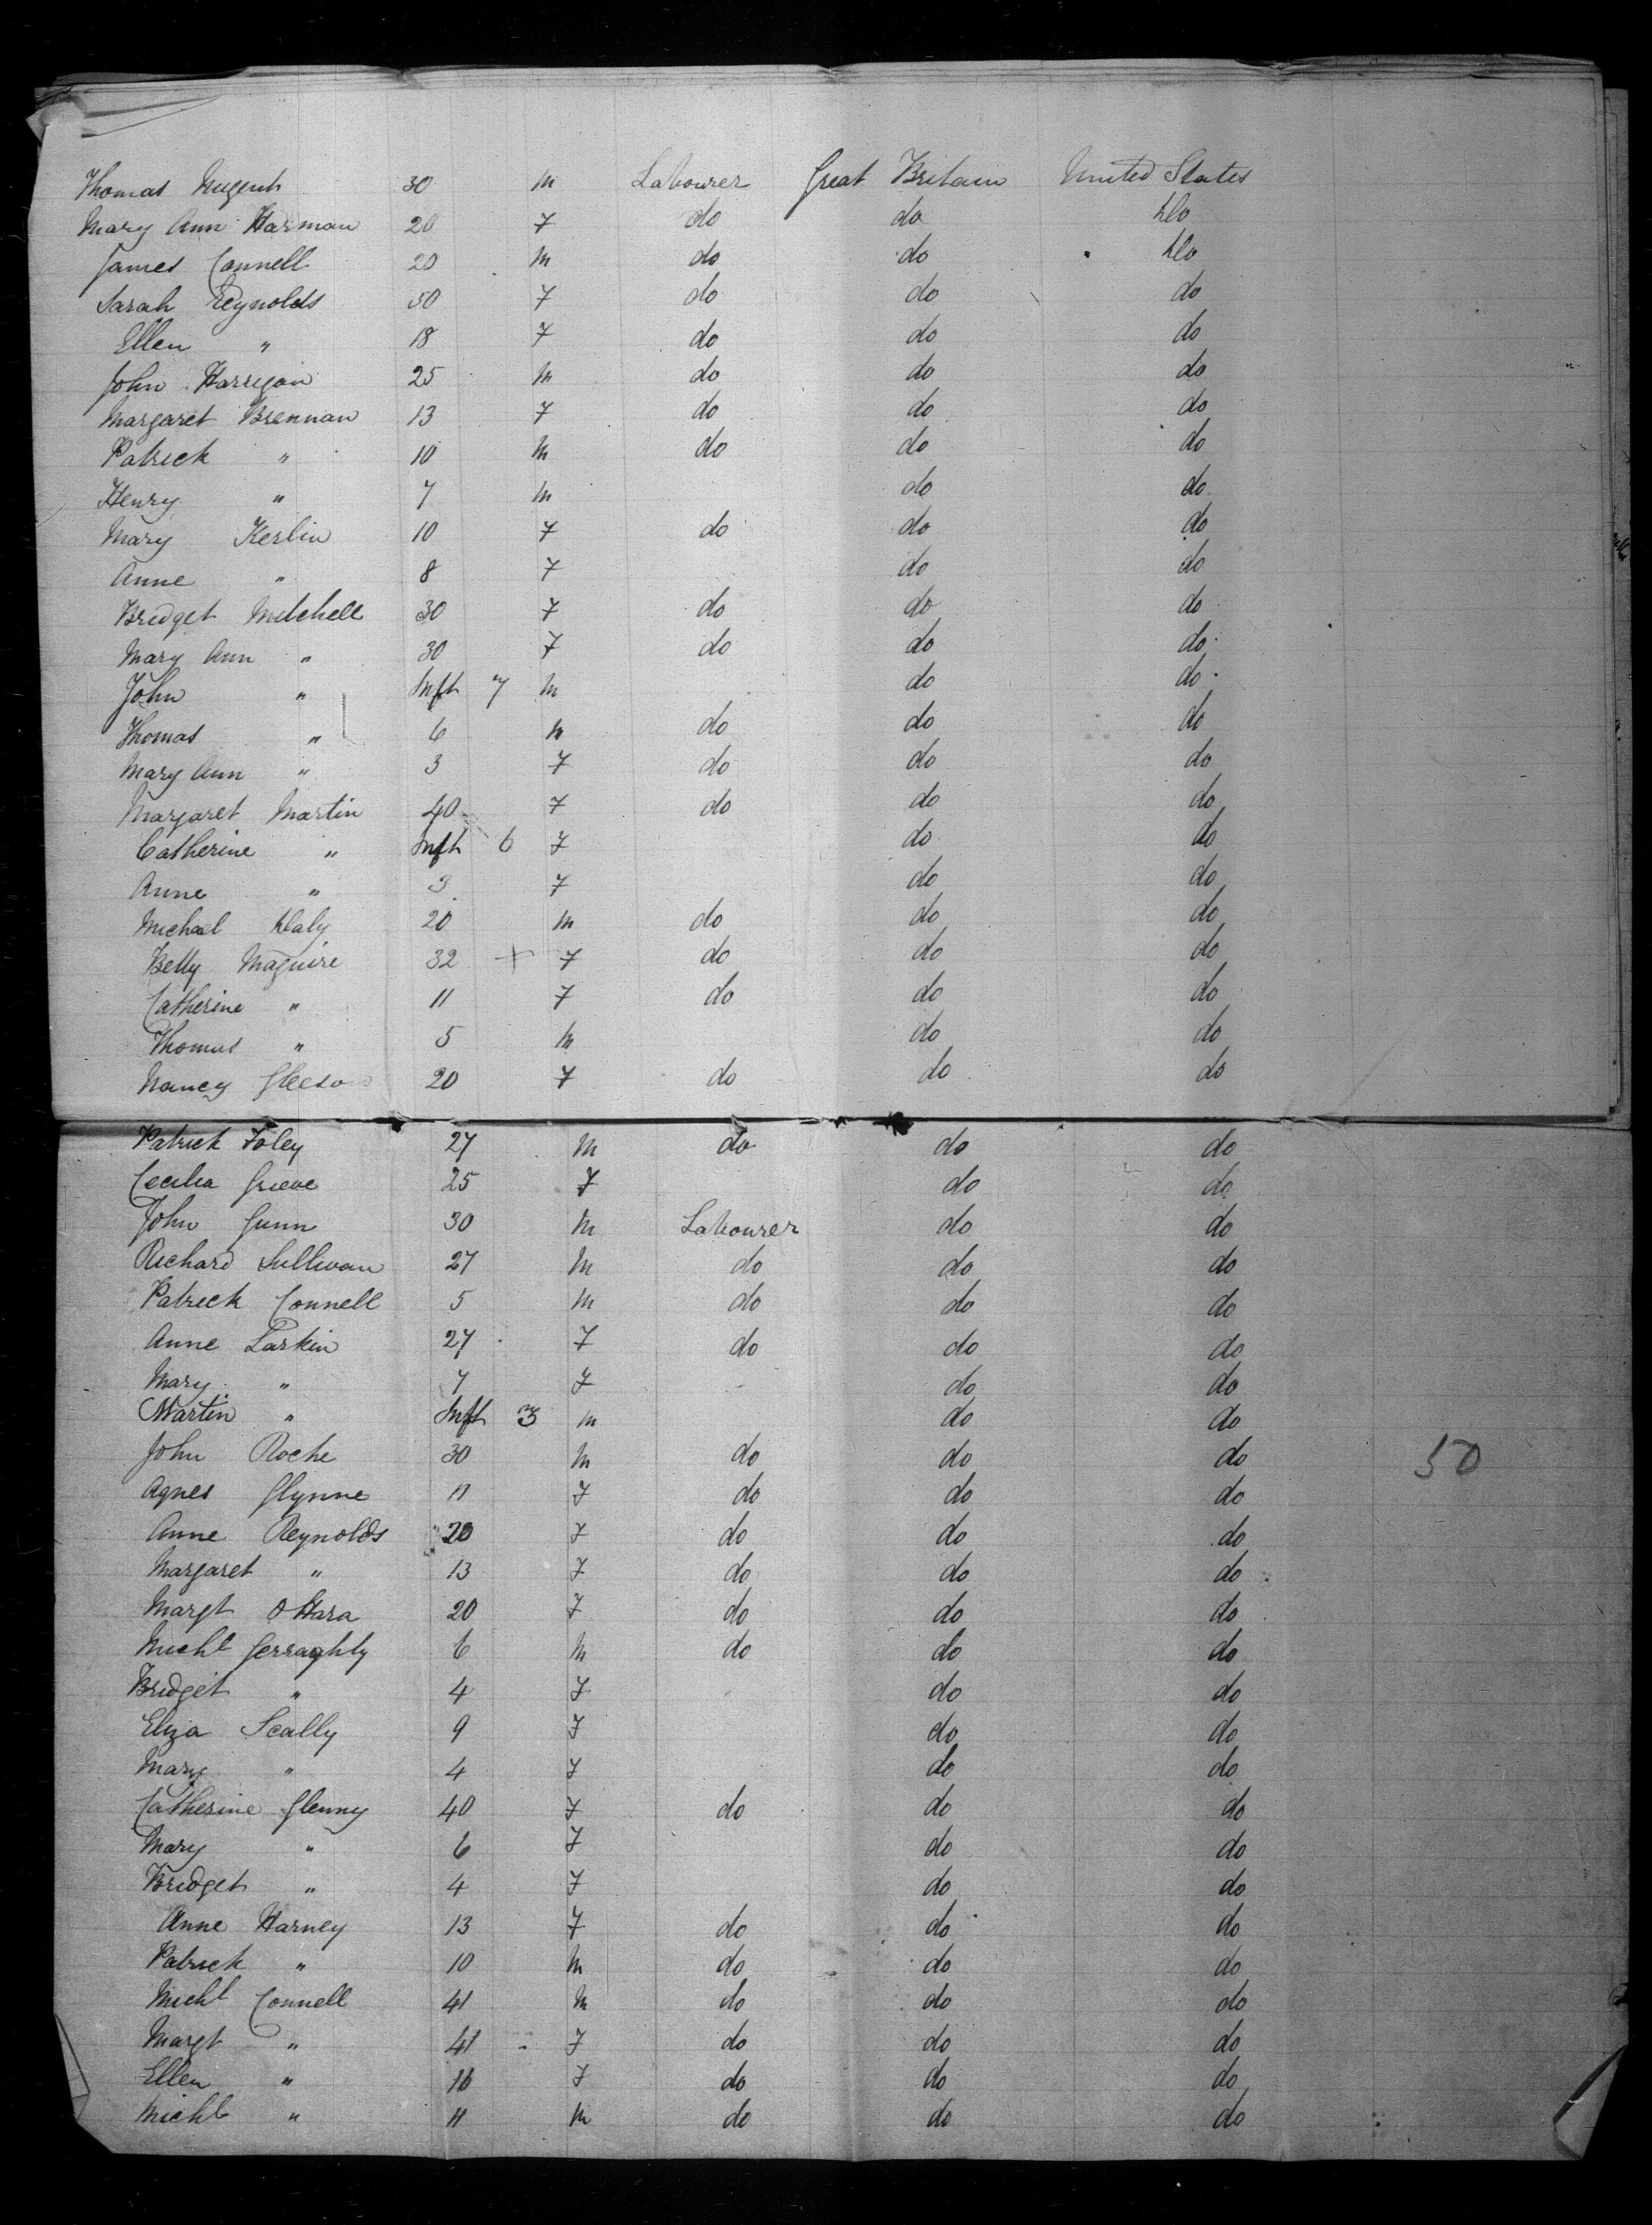 Thomas Nugent 30 M Labourer Great Britain United States
Mary Ann Harman 20 F do do do
James Connell 20 M do do do
Sarah Reynolds 50 F do do do
Ellen " 18 F do do do
John Harrigan 25 M do do do
Margaret Brennan 13 F do do do
Patrick " 10 M do do do
Henry " 7 M do do
Mary Kerlin 10 F do do do
Anne " 8 F do do
Bridget Mitchell 30 F do do do
Mary Ann " 30 F do do do
John " Inft 7 M do do
Thomas " 6 M do do do
Mary Ann " 3 F do do do
Margaret Martin 40 F do do do
Catherine " Inft 6 F do do
Anne " 3 F do do
Michael Daly 20 M do do do
Betty Maguire 32 + F do do do
Catherine " 11 F do do do
Thomas " 5 M do do
Nancy Gleeson 20 F do do do
Patrick Foley 27 M do do do
Cecilia Grieve 25 F do do
John Gunn 30 M Labourer do do
Richard Sullivan 27 M do do do
Patrick Connell 5 M do do do
Anne Larkin 27 F do do do
Mary " 7 F do do
Martin " Inft 3 M do do
John Roche 30 M do do do 50
Agnes Glynne 11 F do do do
Anne Reynolds 20 F do do do
Margaret " 13 F do do do
Margt O Hara 20 F do do do
Michl Gerraghty 6 M do do do
Bridget " 4 F do do
Eliza Scally 9 F do do
Mary " 4 F do do
Catherine Glenny 40 F do do do
Mary " 6 F do do
Bridget " 4 F do do
Anne Harney 13 F do do do
Patrick " 10 M do do do
Michl Connell 41 M do do do
Margt " 41 F do do do
Ellen " 16 F do do do
Michl " 11 M do do do